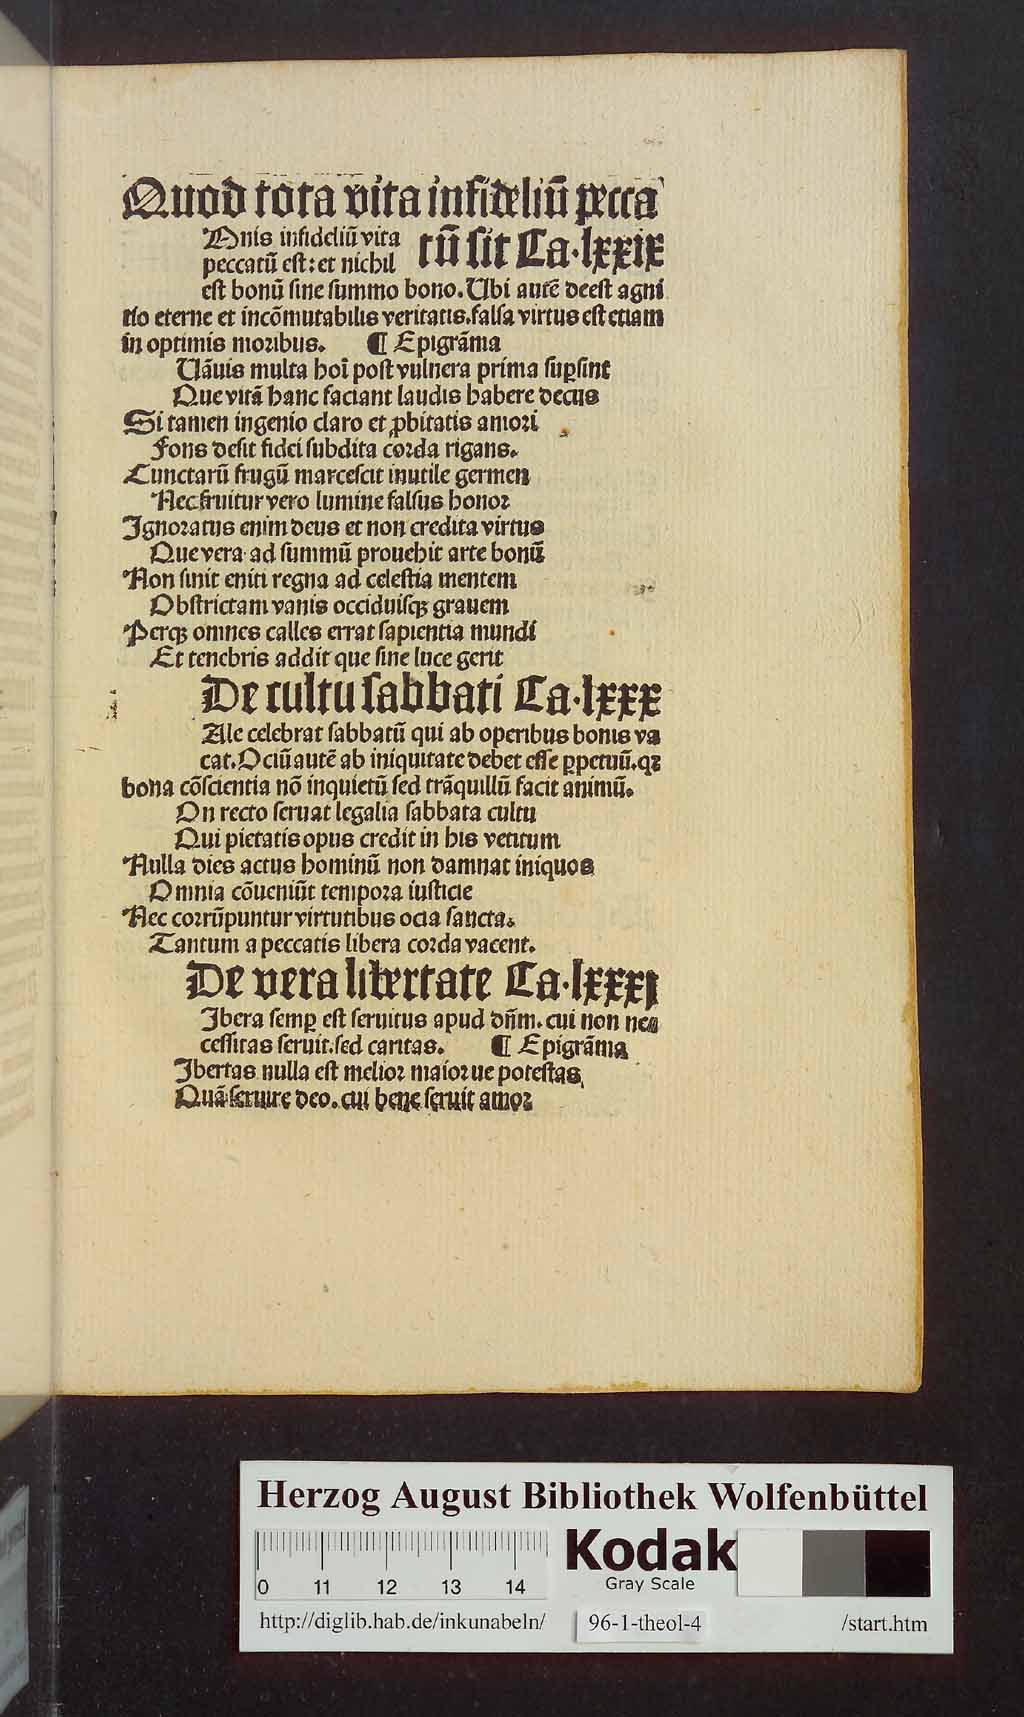 Quod tota vita infideliū pecca
tū sit Ca·lxxix
Mnis infideliū vita
peccatū est: et nichil
est bonū sine summo bono. Ubi autē deest agni
tio eterne et incōmutabilis veritatis. falsa virtus est etiam
in optimis moribus. ¶ Epigrāma
Uāuis multa hoī post vulnera prima suꝑsint
Que vitā hanc faciant laudis habere decus
Si tamen ingenio claro et ꝓbitatis amori
Fons desit fidei subdita corda rigans.
Cunctarū frugū marcescit inutile germen
Nec fruitur vero lumine falsus honor
Ignoratus enim deus et non credita virtus
Que vera ad summū prouehit arte bonū
Non sinit eniti regna ad celestia mentem
Obstrictam vanis occiduisqꝫ grauem
Perqꝫ omnes calles errat sapientia mundi
Et tenebris addit que sine luce gerit
De cultu sabbati Ca·lxxx
Ale celebrat sabbatū qui ab operibus bonis va
cat. Ociū autē ab iniquitate debet esse ꝑpetuū. qꝛ
bona cōscientia nō inquietū sed trāquillū facit animū.
On recto seruat legalia sabbata cultu
Qui pietatis opus credit in his vetitum
Nulla dies actus hominū non damnat iniquos
Omnia cōueniūt tempora iusticie
Nec corrūpuntur virtutibus ocia sancta.
Tantum a peccatis libera corda vacent.
De vera libertate Ca·lxxxj
Ibera semꝑ est seruitus apud dn̄m. cui non ne
cessitas seruit. sed caritas. ¶ Epigrāma
Ibertas nulla est melior maior ue potestas
Quā seruire deo. cui bene seruit amor
Herzog August Bibliothek Wolfenbüttel
0 11 12 13 14
Kodak
Gray Scale
http://diglib.hab.de/inkunabeln/ 96-1-theol-4 /start.htm